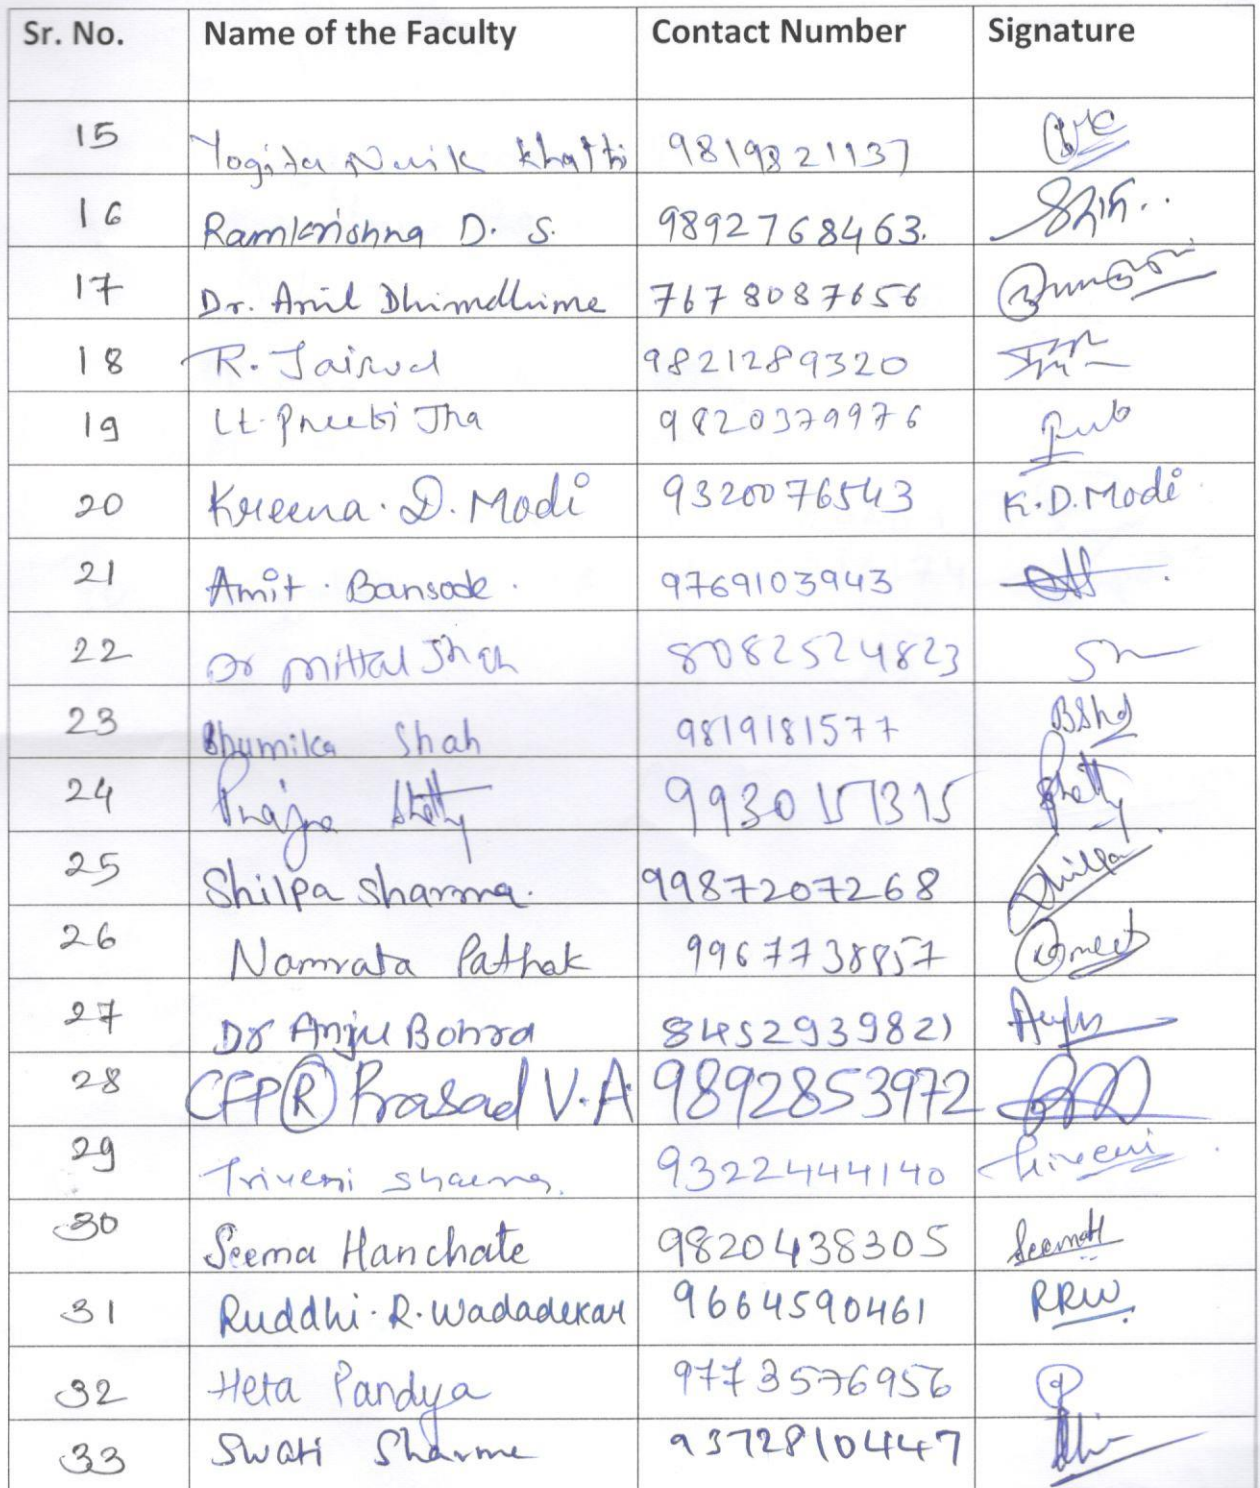 Sr. No. Name of the Faculty Contact Number Signature
15 Yogita Naik Khatti 9819821137
16 Ramkrishna D. S. 9892768463.
17 Dr. Anil Dhimdhime 7678087656
18 R. 9821289320
19 Lt. Preeti Jha 9820379976
20 Kreena. D. Modi 9320076543 K.D. Modi
21 Amit. Bansode. 9769103943
22 Dr Mittal Shah 8082524823
23 Bhumika Shah 9819181577 BShd
24 Prajna Shetty 9930157315 Shetty
25 Shilpa Sharma. 9987207268 Shilpa
26 Namrata Pathak 9967738857
27 Dr Anju Bohra 8452939821
28 CFP® Prasad V.A. 9892853972
29 Triveni Sharma. 9322444140 Triveni
30 Seema Hanchate 9820438305 SeemaH
31 Ruddhi. R. Wadadekar 9664590461 RRW.
32 Heta Pandya 9773576956
33 Swati Sharma 9372810447